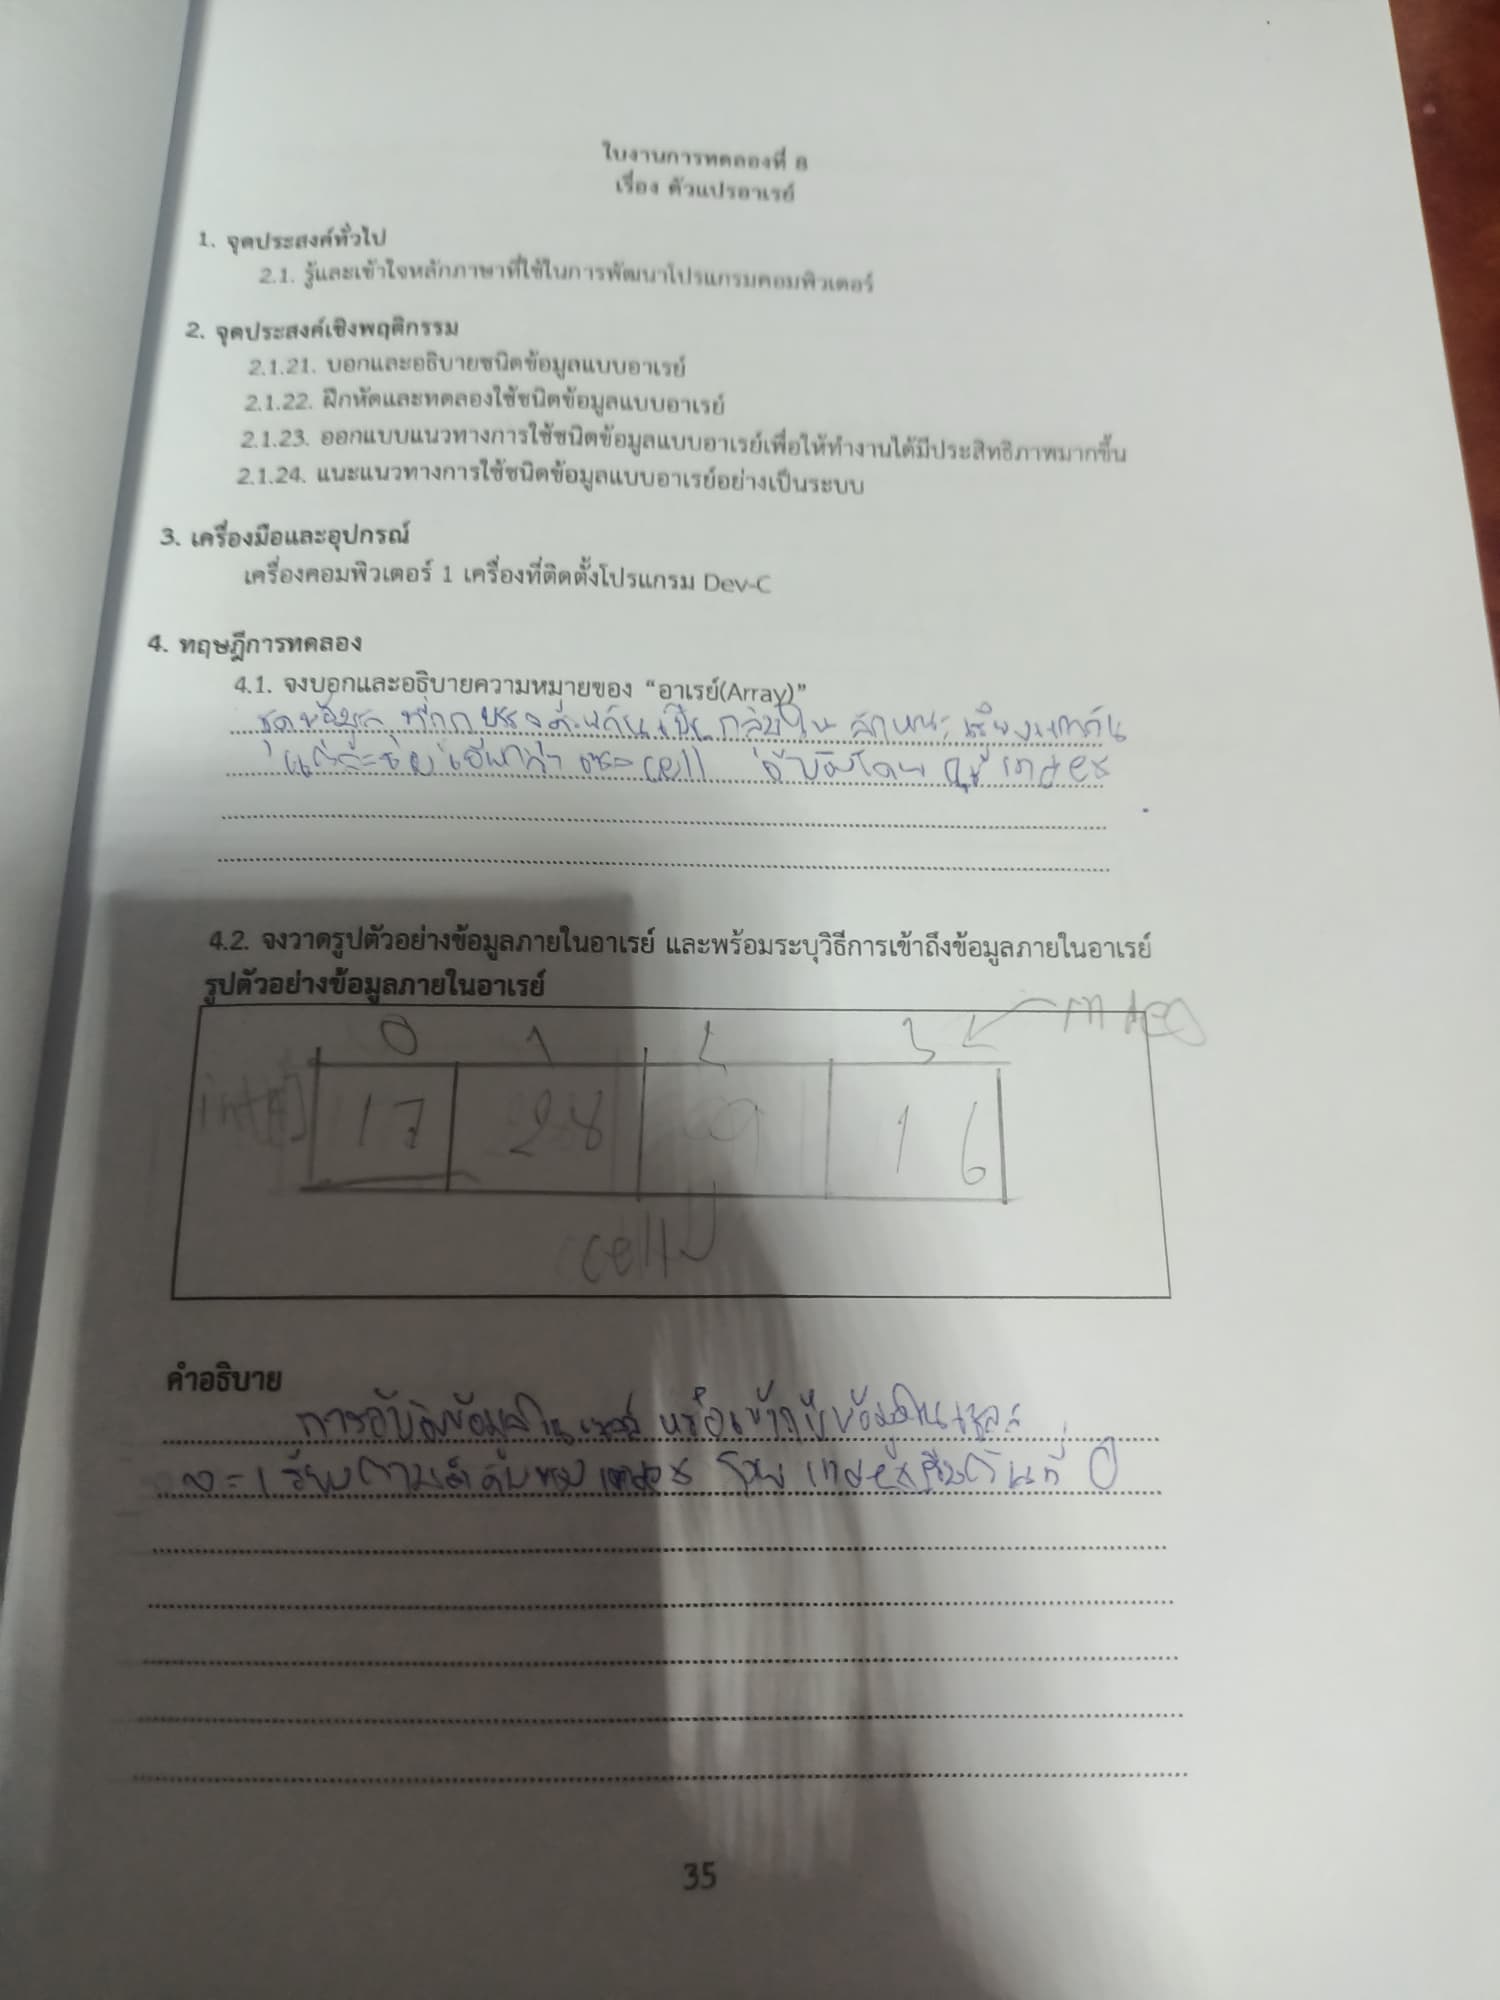 ใบงานการทดลองที่ 8
เรื่อง ตัวแปรอาเรย์
1. จุดประสงค์ทั่วไป
2.1. รู้และเข้าใจหลักภาษาที่ใช้ในการพัฒนาโปรแกรมคอมพิวเตอร์
2. จุดประสงค์เชิงพฤติกรรม
2.1.21. บอกและอธิบายชนิดข้อมูลแบบอาเรย์
2.1.22. ฝึกหัดและทดลองใช้ชนิดข้อมูลแบบอาเรย์
2.1.23. ออกแบบแนวทางการใช้ชนิดข้อมูลแบบอาเรย์เพื่อให้ทำงานได้มีประสิทธิภาพมากขึ้น
2.1.24. แนะแนวทางการใช้ชนิดข้อมูลแบบอาเรย์อย่างเป็นระบบ
3. เครื่องมือและอุปกรณ์
เครื่องคอมพิวเตอร์ 1 เครื่องที่ติดตั้งโปรแกรม Dev-C
4. ทฤษฎีการทดลอง
4.1. จงบอกและอธิบายความหมายของ “อาเรย์(Array)”
ชุดข้อมูล ที่ถูก ใน ลักษณะ เรียง
แต่ละช่อง cell
4.2. จงวาดรูปตัวอย่างข้อมูลภายในอาเรย์ และพร้อมระบุวิธีการเข้าถึงข้อมูลภายในอาเรย์
รูปตัวอย่างข้อมูลภายในอาเรย์
0 1 2 3
17 28 9 16
cell
คำอธิบาย
การ ข้อมูลใน หรือเข้าถึงข้อมูลใน
จะเรียงตามลำดับของ โดย ที่ 0
35